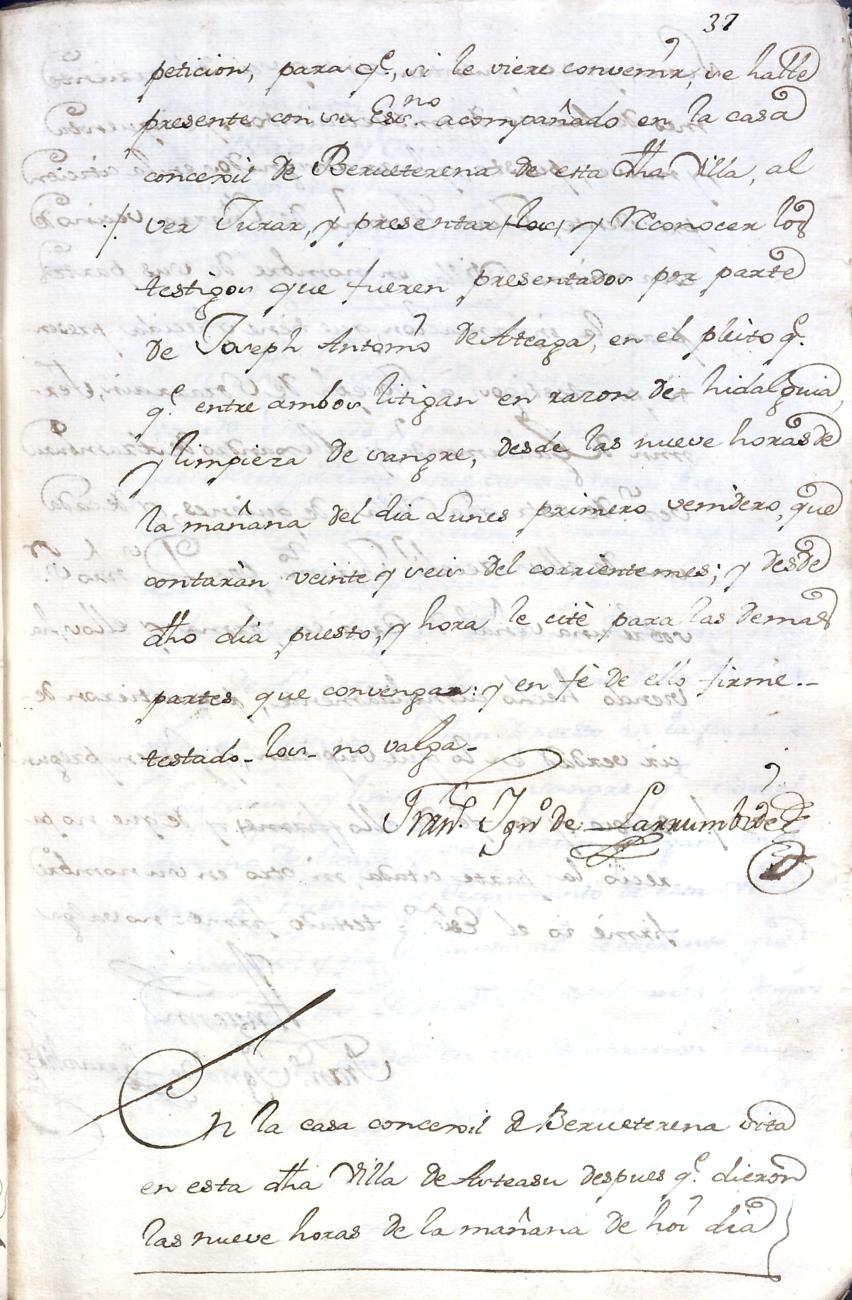 37
peticion, para q.e, si le viere convenir, se halle
presente con su Ess.no acompañado en la casa
concexil de Berueterena de esta dha Villa, al
ver Jurar, y presentar, los, y Reconocer los
testigos que fueren presentados por parte
de Joseph Antonio de Ateaga, en el pleito q.e
q.e entre ambos litigan en razon de hidalguia,
y limpieza de sangre, desde las nueve horas de
la mañana del dia Lunes primero venidero, que
contaràn veinte y seis del corriente mes; y desde
dho dia puesto, y hora le citè para las demas
partes que convengan: y en fè de ello firmé.-
testado - los - no valga -
Fran.co Ign.o de Larrumbide
En la casa concexil de Berueterena sita
en esta dha Villa de Asteasu despues q.e dieron
las nueve horas de la mañana de hoi dia